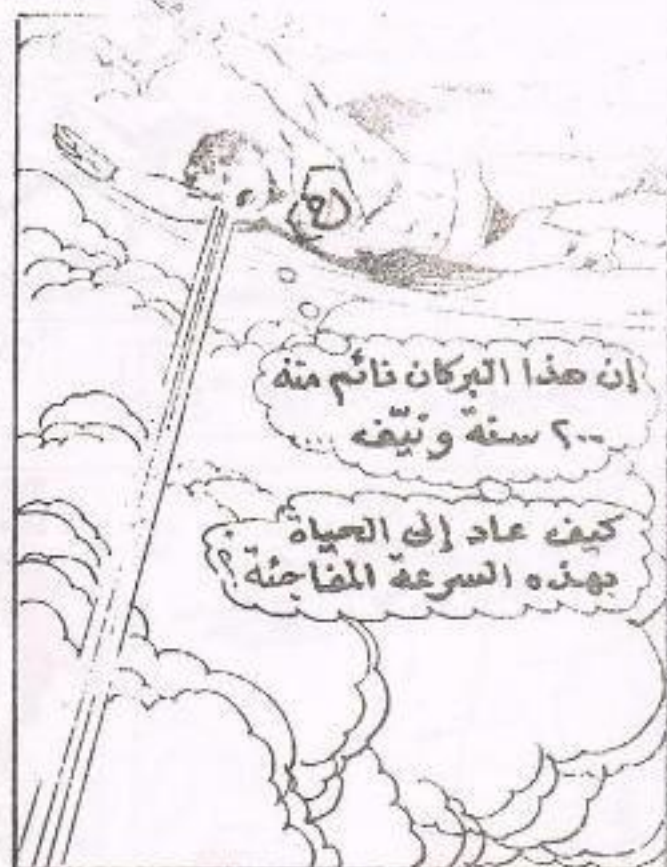 إن هذا البركان نائم منذ
٢٠٠ سنة ونيّف ...
كيف عاد إلى الحياة
بهذه السرعة المفاجئة ؟